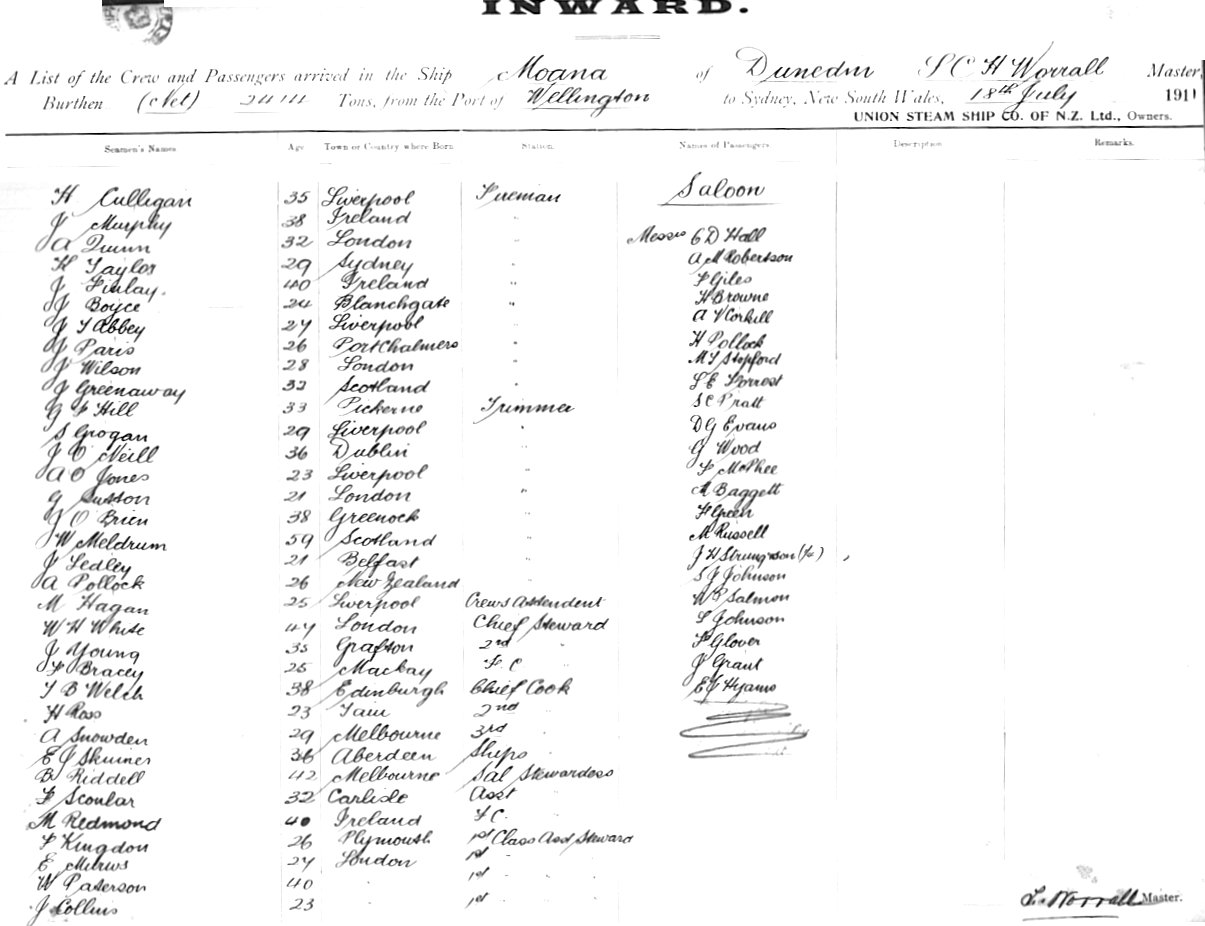 INWARD.
A List of the Crew and Passengers arrived in the Ship Moana of Dunedin S C H Worrall Master,
Burthen (Net) 2414 Tons, from the Port of Wellington to Sydney, New South Wales, 18th July 1911
UNION STEAM SHIP CO. OF N.Z. Ltd., Owners.
Seamen's Names Age Town or Country where Born Station. Names of Passengers Description Remarks.
Saloon
H Culligan 35 Liverpool Fireman
J Murphy 38 Ireland "
A Quinn 32 London " Messrs C D Hall
H Taylor 29 Sydney " A M Robertson
J Finlay. 40 Ireland " F Giles
J Boyce 24 Blanchgate " H Browne
J T Abbey 27 Liverpool " A V Corkill
J Paris 26 Port Chalmers " H Pollock
J Wilson 28 London " M T Stopford
J Greenaway 32 Scotland " S E Forrest
G F Hill 33 Trimmer S C Pratt
S Grogan 29 Liverpool " D G Evans
J O'Neill 36 Dublin " G Wood
A O Jones 23 Liverpool " F McPhee
G Sutton 21 London " M Baggett
J O Brien 38 Greenock " F Green
W Meldrum 59 Scotland " M Russell
J Ledley 21 Belfast " J H
A Pollock 26 New Zealand " S J Johnson
M Hagan 25 Liverpool Crews Attendent W Salmon
W H White 47 London Chief Steward S Johnson
J Young 35 Grafton 2nd " F Glover
F Bracey 25 Mackay F C " J Grant
T B Welch 38 Edinburgh Chief Cook E J Hyams
H Ross 23 Tain 2nd "
A Snowden 29 Melbourne 3rd "
E J Skinner 36 Aberdeen Ships "
B Riddell 42 Melbourne Sal Stewardess
F Scoular 32 Carlisle Asst "
M Redmond 40 Ireland F C. "
F Kingdon 26 Plymouth 1st Class Asst Steward
E 27 London 1st "
W Paterson 40 " 1st "
J Collins 23 " 1st "
Worrall Master.